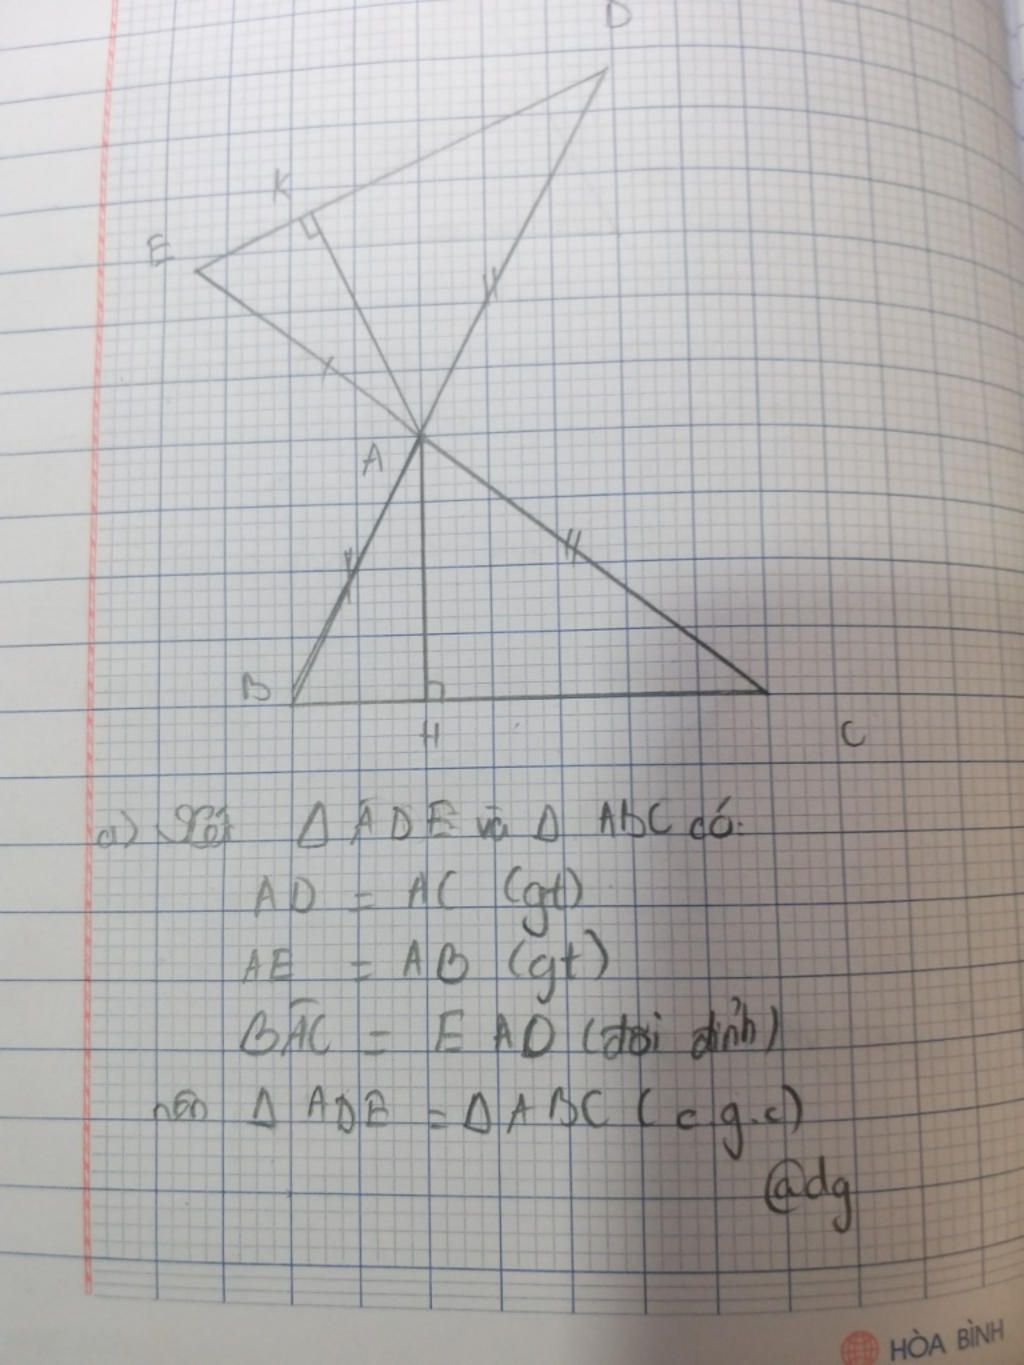 D
K
E
A
B
H
C
a) Xét Δ ADE và Δ ABC có:
AD = AC (gt)
AE = AB (gt)
BAC = EAD (đối đỉnh)
nên Δ ADE = Δ ABC (c.g.c)
@dg
HÒA BÌNH